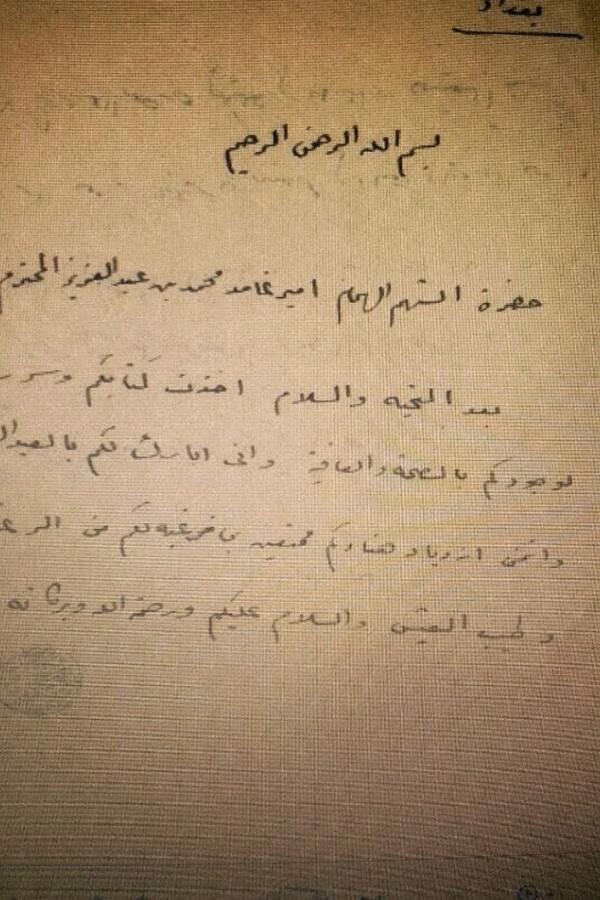 بغداد
بسم الله الرحمن الرحيم
حضرة الشهم الهمام امير غامد محمد بن عبد العزيز المحترم
بعد التحيه والسلام اخذت كتابكم
لوجودكم بالصحة والعافية وانى ابارك لكم
واتمنى ازدياد
وطيب العيش والسلام عليكم ورحمة الله وبركاته